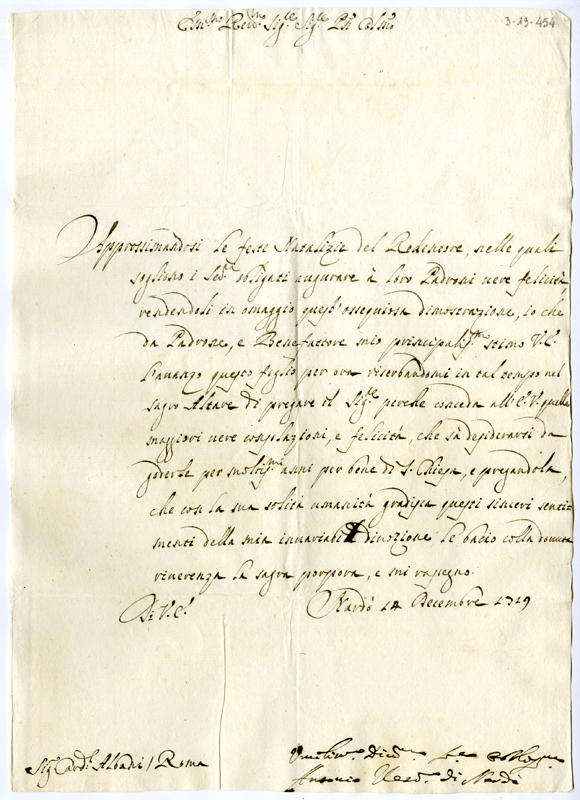 3-19-454
Em.mo Rev.mo Sig.re Sig.re P.ron Col.mo
Approssimandosi le feste Natalizie del Redentore, nelle quali
sogliono i Ser.i obligati augurare à loro Padroni vere felicità
rendendoli in omaggio quest'ossequiosa dimostrazione, io che
da Padrone, e Benefattore mio principalis.mo stimo V.E.
l'avanzo questo foglio per ora riserbandomi in tal tempo nel
sagro Altare di pregare il Sig.re perche conceda all'E.V. quelle
maggiori vere consolazioni, e felicità, che sà desiderarsi da
goderle per moltis.mi anni per bene di S. Chiesa, e pregandola,
che con la sua solita umanità gradisca questi sinceri senti
menti della mia invariabil divozione le bacio colla dovuta
riverenza la sagra porpora, e mi rasegno.
Di V.E.
Nardò 14 Decembre 1719
Sig.r Card.l Albani / Roma
Antonio Vesc.o di Nardò